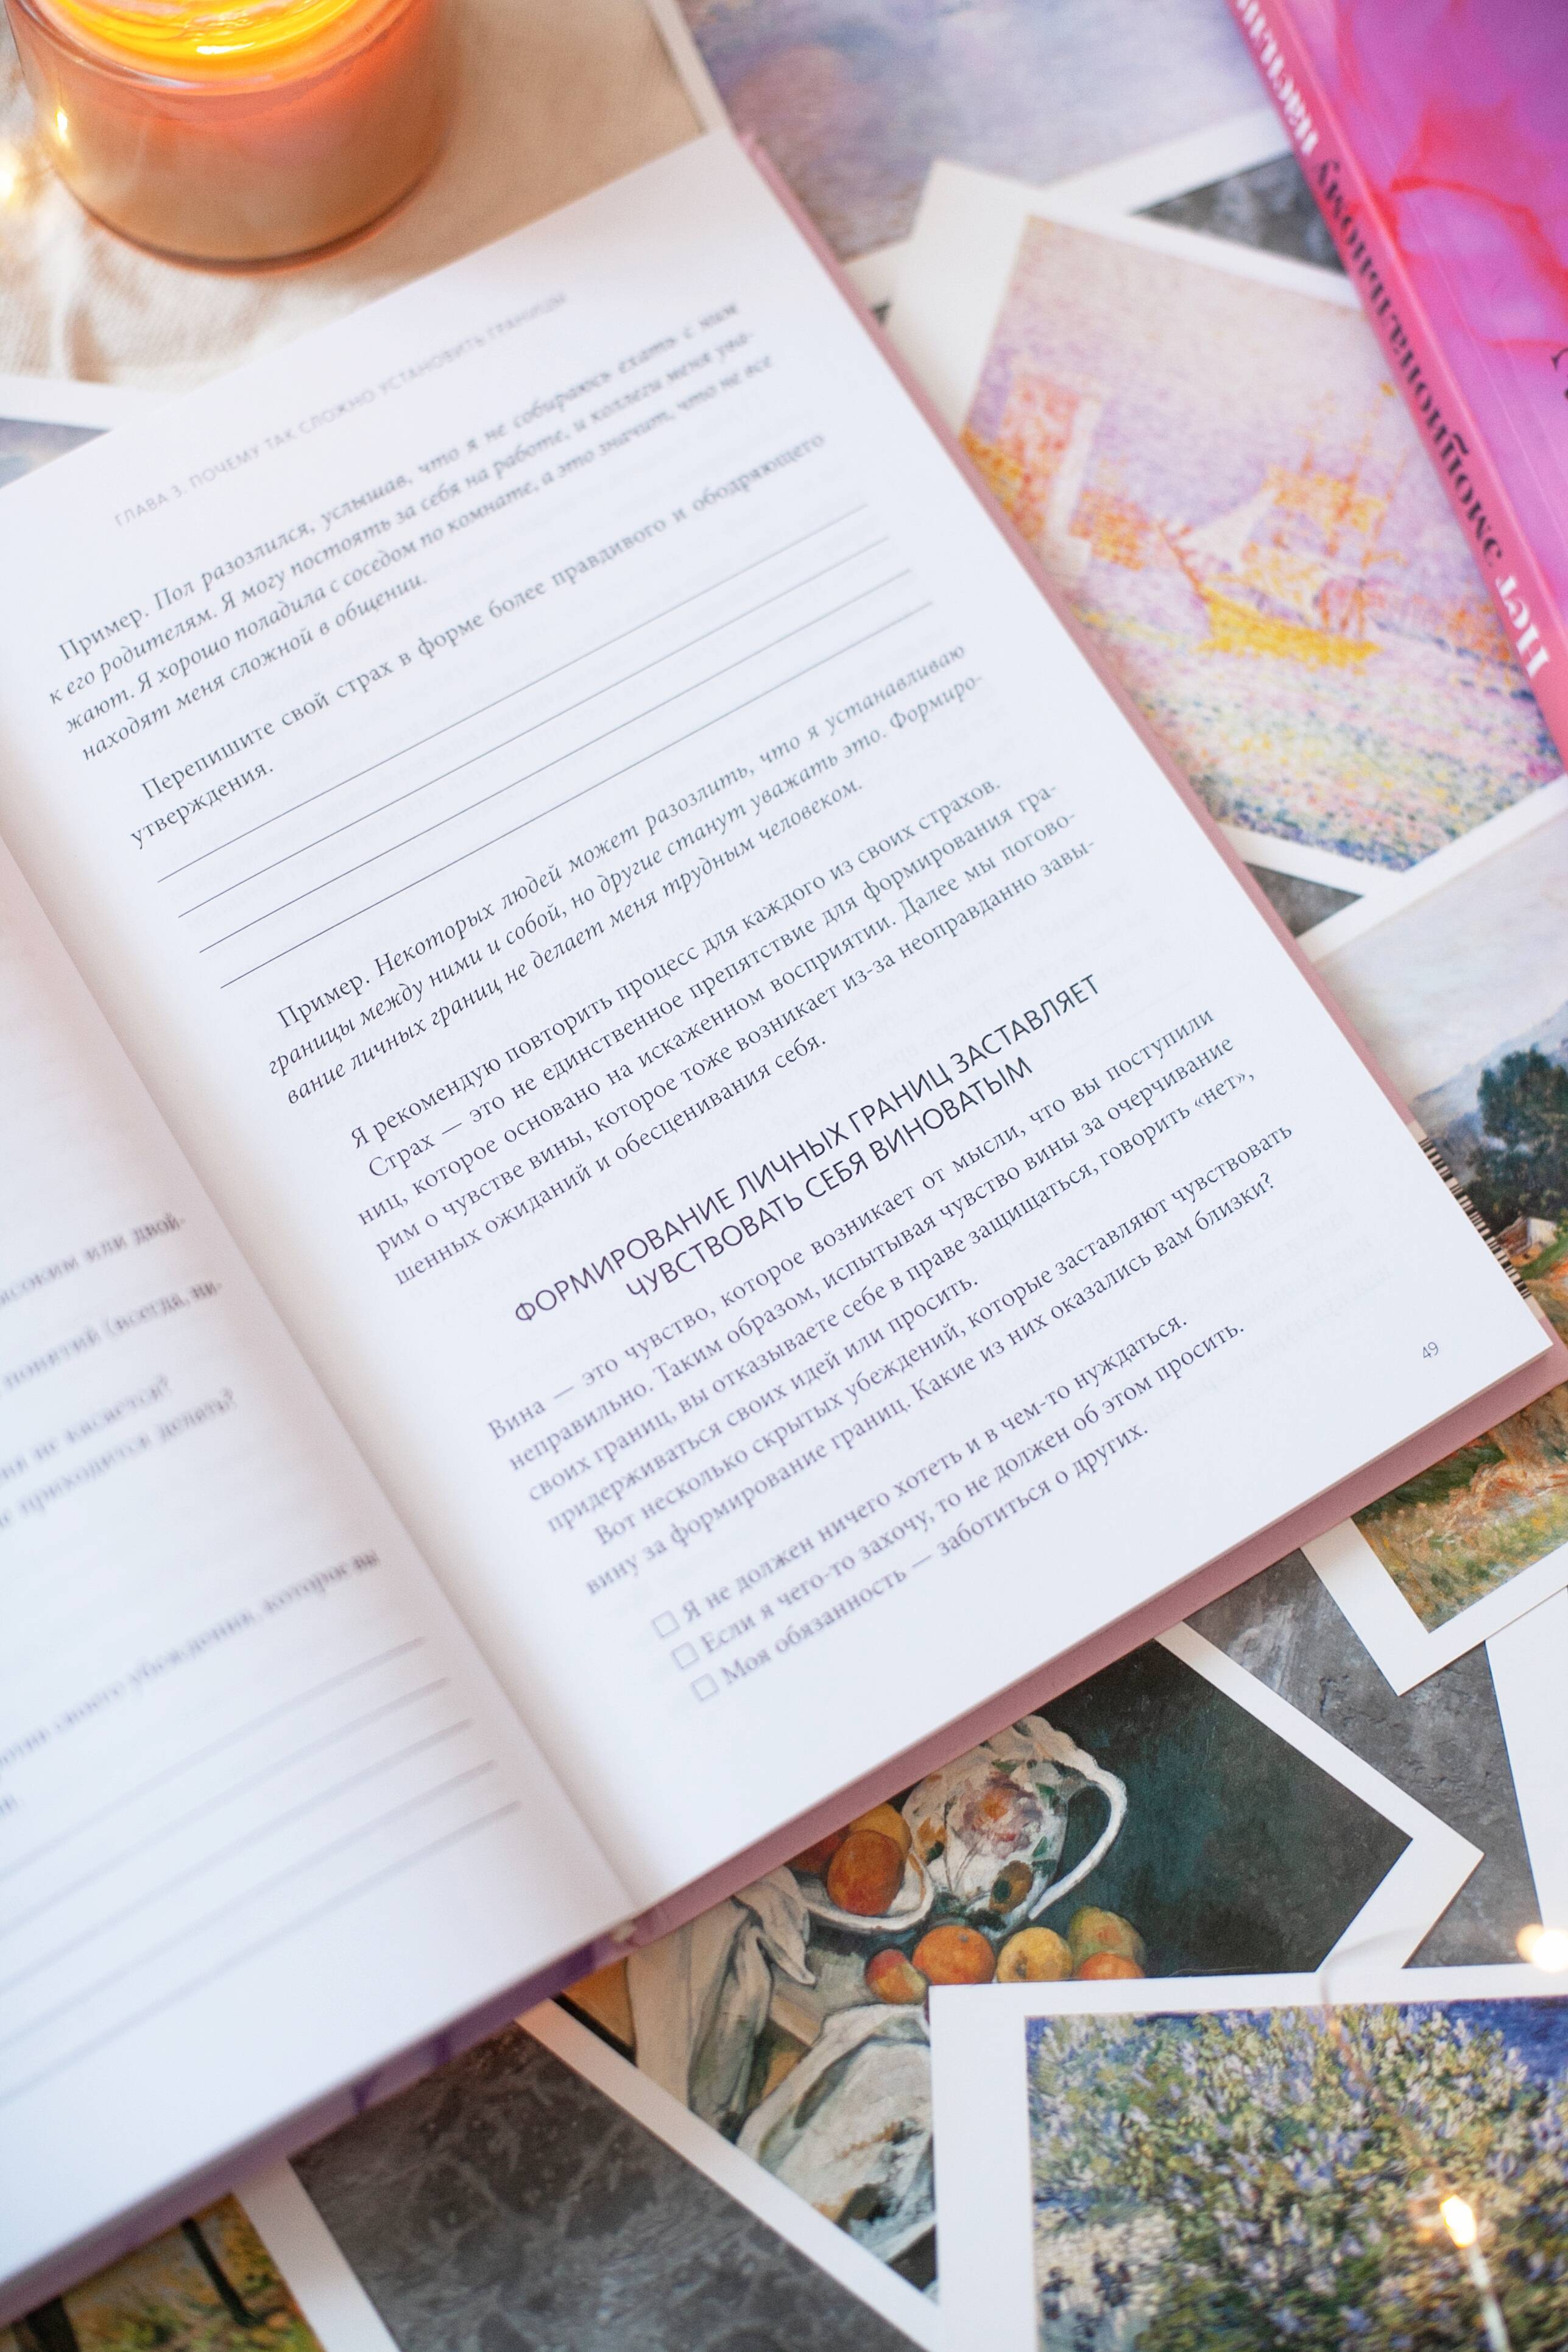 высоким или двой-
понятий (всегда, ни-
не касается?
приходится делать?
своего убеждения, которое вы
ГЛАВА 3. ПОЧЕМУ ТАК СЛОЖНО УСТАНОВИТЬ ГРАНИЦЫ
Пример. Пол разозлился, услышав, что я не собираюсь ехать с ним
к его родителям. Я могу постоять за себя на работе, и коллеги меня ува-
жают. Я хорошо поладила с соседом по комнате, а это значит, что не все
находят меня сложной в общении.
Перепишите свой страх в форме более правдивого и ободряющего
утверждения.
Пример. Некоторых людей может разозлить, что я устанавливаю
границы между ними и собой, но другие станут уважать это. Формиро-
вание личных границ не делает меня трудным человеком.
Я рекомендую повторить процесс для каждого из своих страхов.
Страх — это не единственное препятствие для формирования гра-
ниц, которое основано на искаженном восприятии. Далее мы погово-
рим о чувстве вины, которое тоже возникает из-за неоправданно завы-
шенных ожиданий и обесценивания себя.
ФОРМИРОВАНИЕ ЛИЧНЫХ ГРАНИЦ ЗАСТАВЛЯЕТ
ЧУВСТВОВАТЬ СЕБЯ ВИНОВАТЫМ
Вина — это чувство, которое возникает от мысли, что вы поступили
неправильно. Таким образом, испытывая чувство вины за очерчивание
своих границ, вы отказываете себе в праве защищаться, говорить «нет»,
придерживаться своих идей или просить.
Вот несколько скрытых убеждений, которые заставляют чувствовать
вину за формирование границ. Какие из них оказались вам близки?
☐ Я не должен ничего хотеть и в чем-то нуждаться.
☐ Если я чего-то захочу, то не должен об этом просить.
☐ Моя обязанность — заботиться о других.
49
Нет эмоциональному